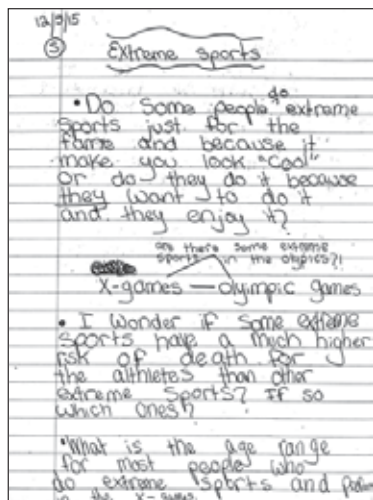 12/3/15
③
Extreme Sports
• Do Some people do extreme
Sports just for the
fame and because it
make you look "Cool"
Or do they do it because
they want to do it
and they enjoy it?
are there Some extreme
sports in the olypics?!
X-games — olympic games
• I wonder if Some extreme
Sports have a much higher
risk of death for
the althletes than other
extreme Sports? If so
which ones?
• What is the age range
for most people who
do extreme sports and
in the x-games